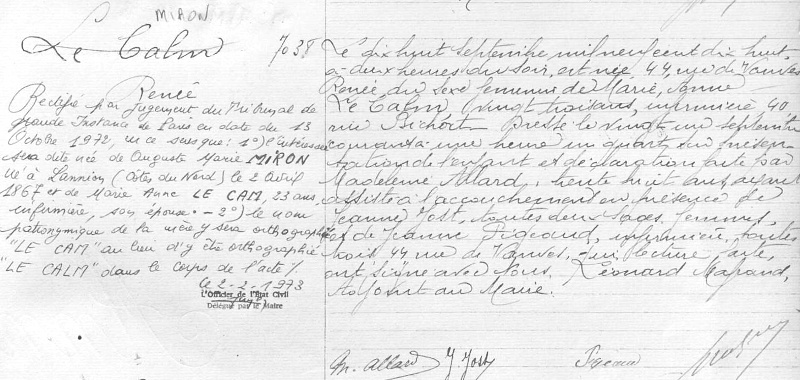 MIRON
Le Calm
7038
Renée
Rectifié par Jugement du Tribunal de
Grande Instance de Paris en date du 13
Octobre 1972, en ce sens que : 1°) l'intéressée
sera dite née de Auguste Marie MIRON
né à Lannion (Côtes du Nord) le 2 Avril
1867 et de Marie Anne LE CAM, 23 ans,
infirmière, son épouse. - 2°) le nom
patronymique de la mère y sera orthographié
"LE CAM" au lieu d'y être orthographié
"LE CALM" dans le corps de l'acte /.
le 2-2-1973
L'Officier de l'Etat Civil
Délégué par le Maire
Le dix huit Septembre mil neuf cent dix huit,
à deux heures du soir, est née, 44, rue de Vanves
Renée du sexe féminin de Marie, Anne
Le Calm, vingt trois ans, infirmière 40
rue Bichat. Dressé le vingt un septembre
courant à une heure un quart, sur présen-
tation de l'enfant et déclaration faite par
Madeleine Allard, trente huit ans, ayant
assisté à l'accouchement en présence de
Jeanne Jost, toutes deux sages femmes,
et de Jeanne Pigeaud, infirmière, toutes
trois, 44 rue de Vanves, qui, lecture faite,
ont signé avec Nous, Léonard
Adjoint au Maire.
M. Allard J. Jost